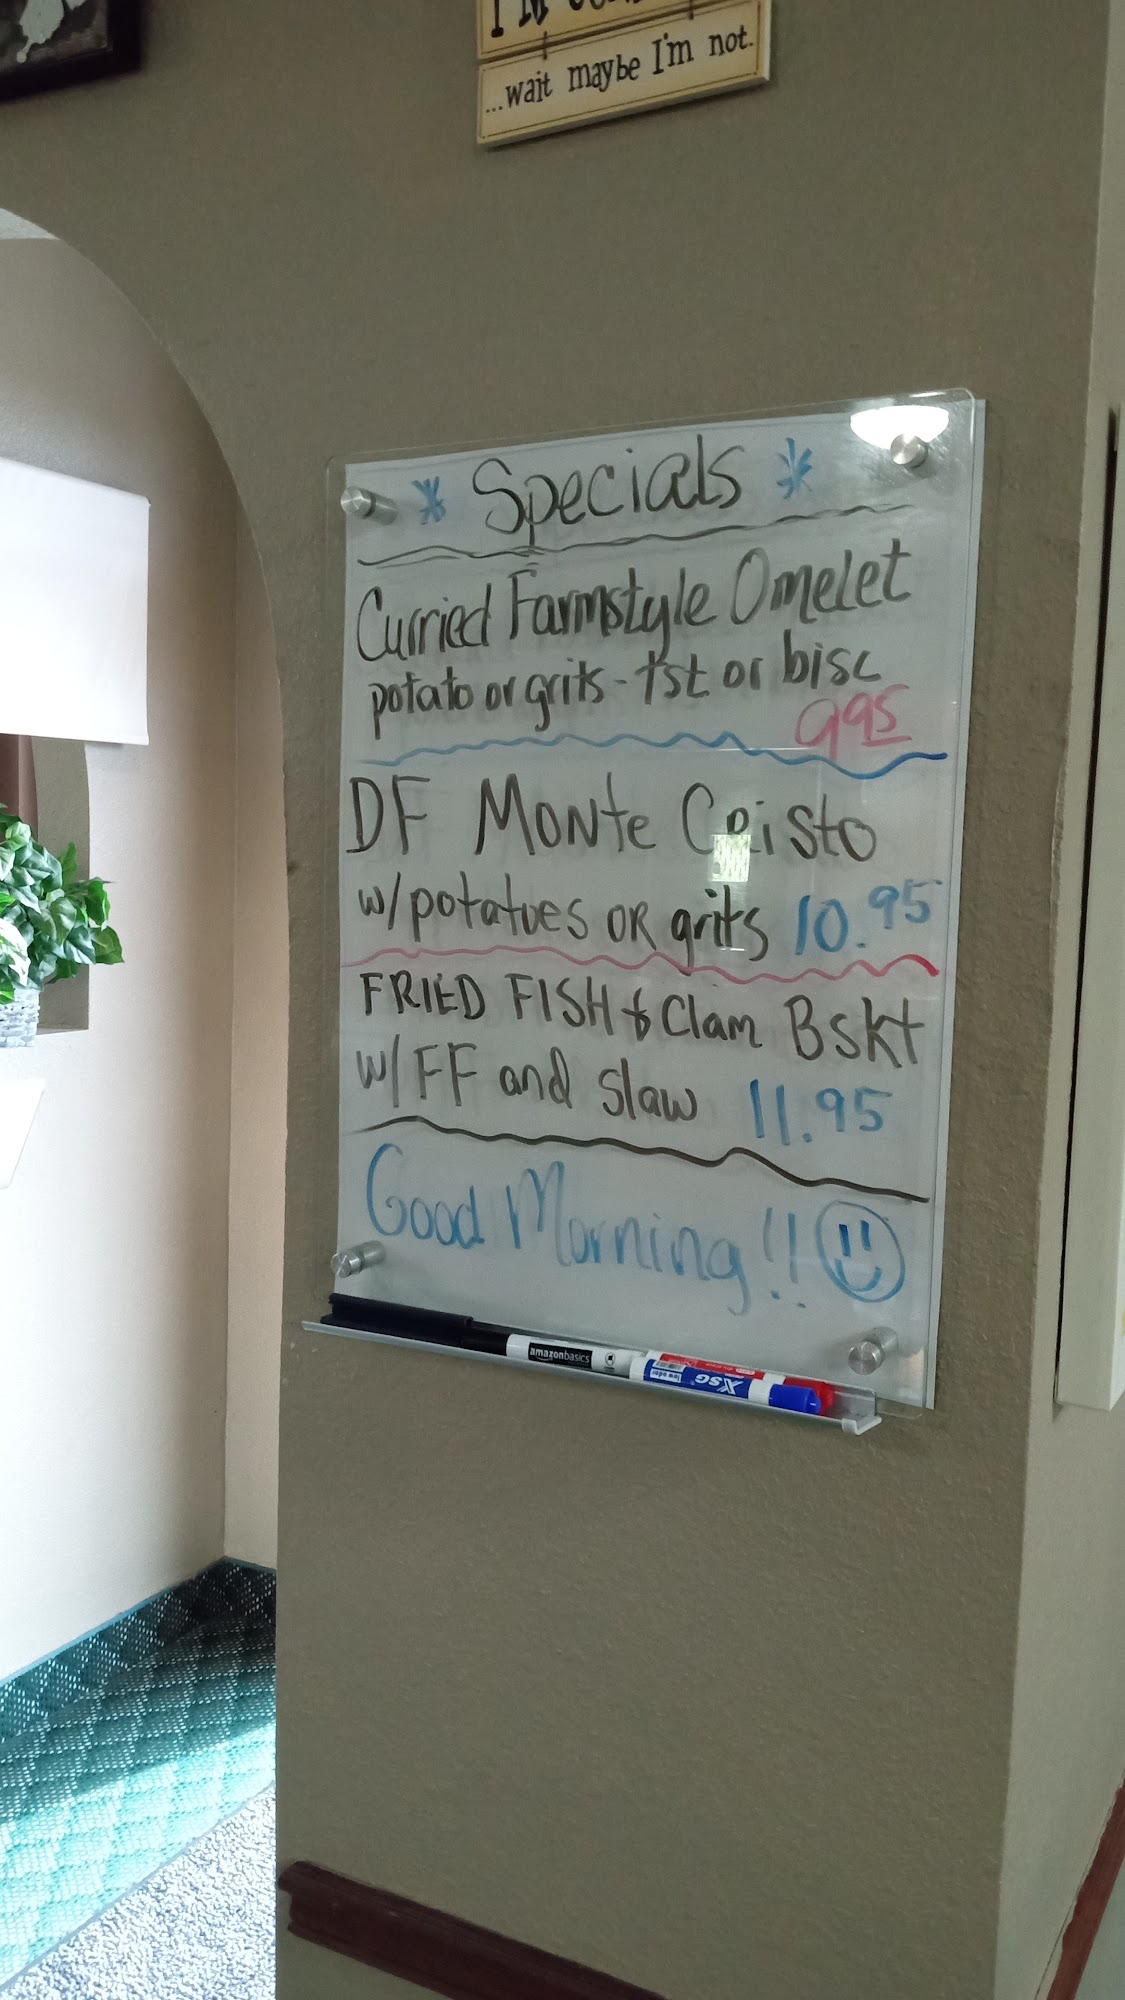 ...wait maybe I'm not.
* Specials *
Curried Farmstyle Omelet
potato or grits - tst or bisc
9 95
DF Monte Cristo
w/potatoes OR grits 10.95
FRIED FISH & Clam Bskt
w/FF and slaw 11.95
Good Morning!!
amazonbasics
XSG
low odor